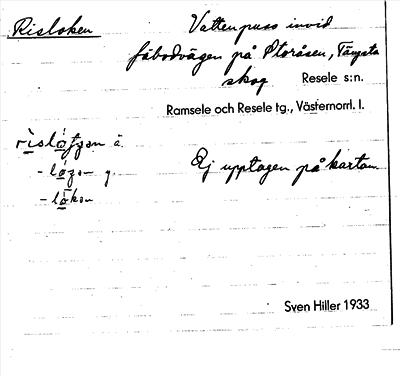 Risloken
Vattenpuss invid
fäbodvägen på Storåsen, Tängsta
skog Resele s:n.
Ramsele och Resele tg., Västernorrl. l.
Ej upptagen på kartan
Sven Hiller 1933